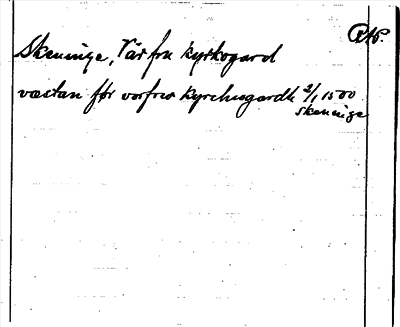 Rtp.
Skeninge, Vår fru kyrkogard
væstan før vorfrw kyrchugardh 2/1 1500
Skeninge